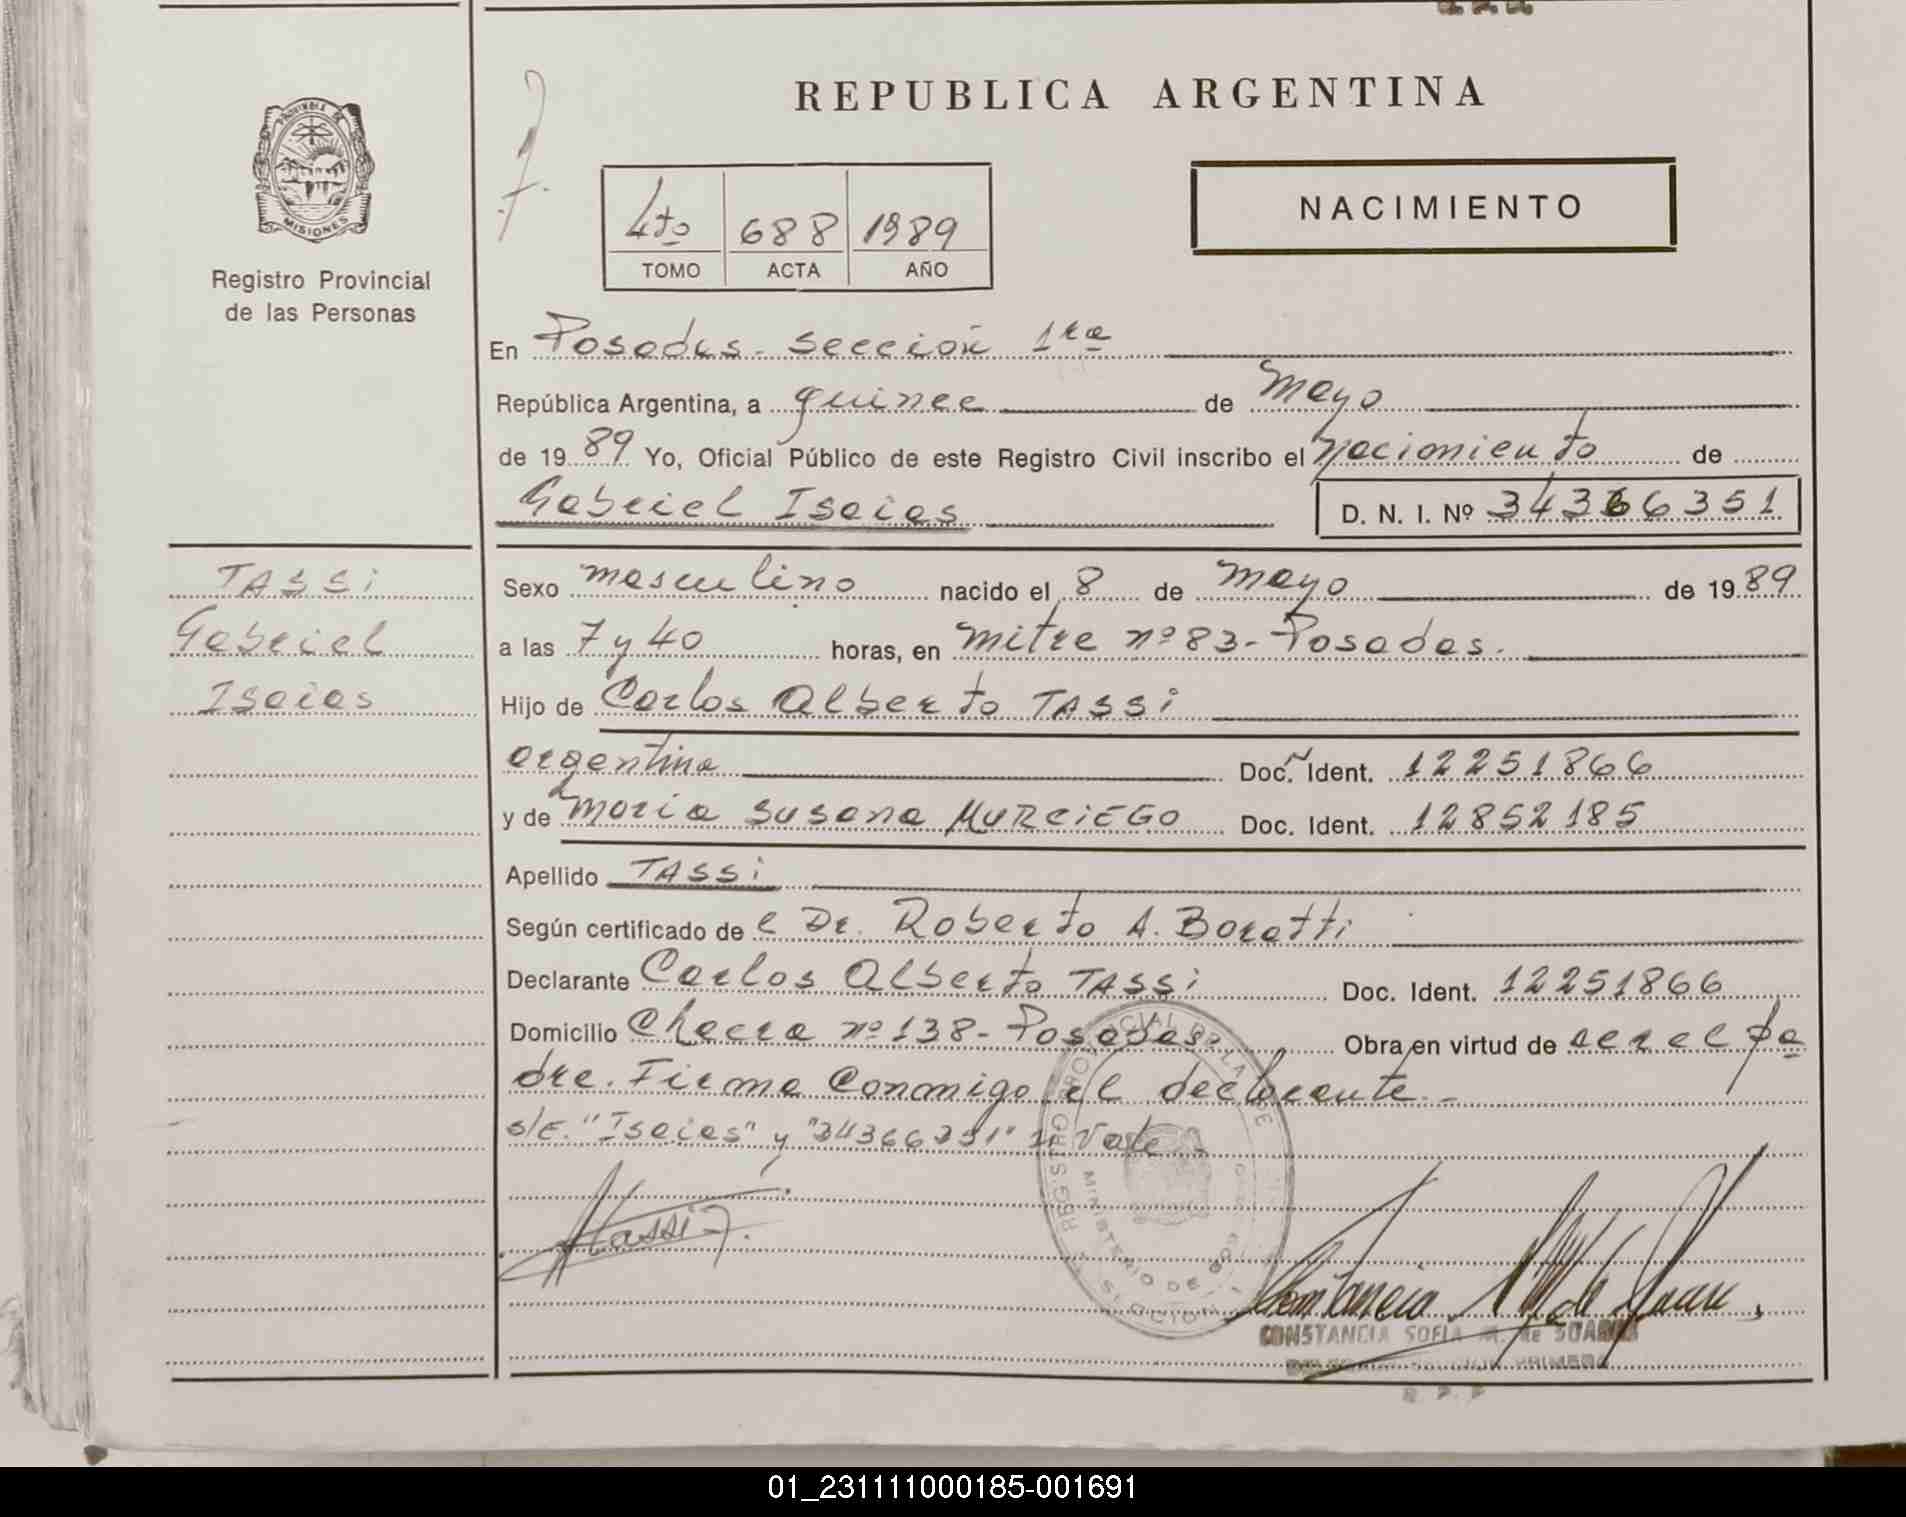 REPUBLICA ARGENTINA
PROVINCIA DE
MISIONES
Registro Provincial
de las Personas
4to 688 1989
TOMO ACTA AÑO
NACIMIENTO
En Posadas - Sección 1ra
República Argentina, a quince de Mayo
de 19 89 Yo, Oficial Público de este Registro Civil inscribo el nacimiento de
Gabriel Isaias D. N. I. Nº 34366351
TASSi
Gabriel
Isaias
Sexo masculino nacido el 8 de mayo de 19 89
a las 7 y 40 horas, en mitre nº 83 - Posadas.
Hijo de Carlos Alberto TASSi
argentina Doc. Ident. 12251866
y de Maria Susana MURCiEGO Doc. Ident. 12852185
Apellido TASSi
Según certificado de el Dr. Roberto A. Boratti
Declarante Carlos Alberto TASSi Doc. Ident. 12251866
Domicilio Chacra nº 138 - Posadas. Obra en virtud de ser el pa
dre. Firma Conmigo el declarante -
s/E. "Isaias" y "34366351" Vale -
Tassi
CONSTANCIA SOFIA M. de SUAREZ
SECCION PRIMERA
R. P. P.
01_231111000185-001691